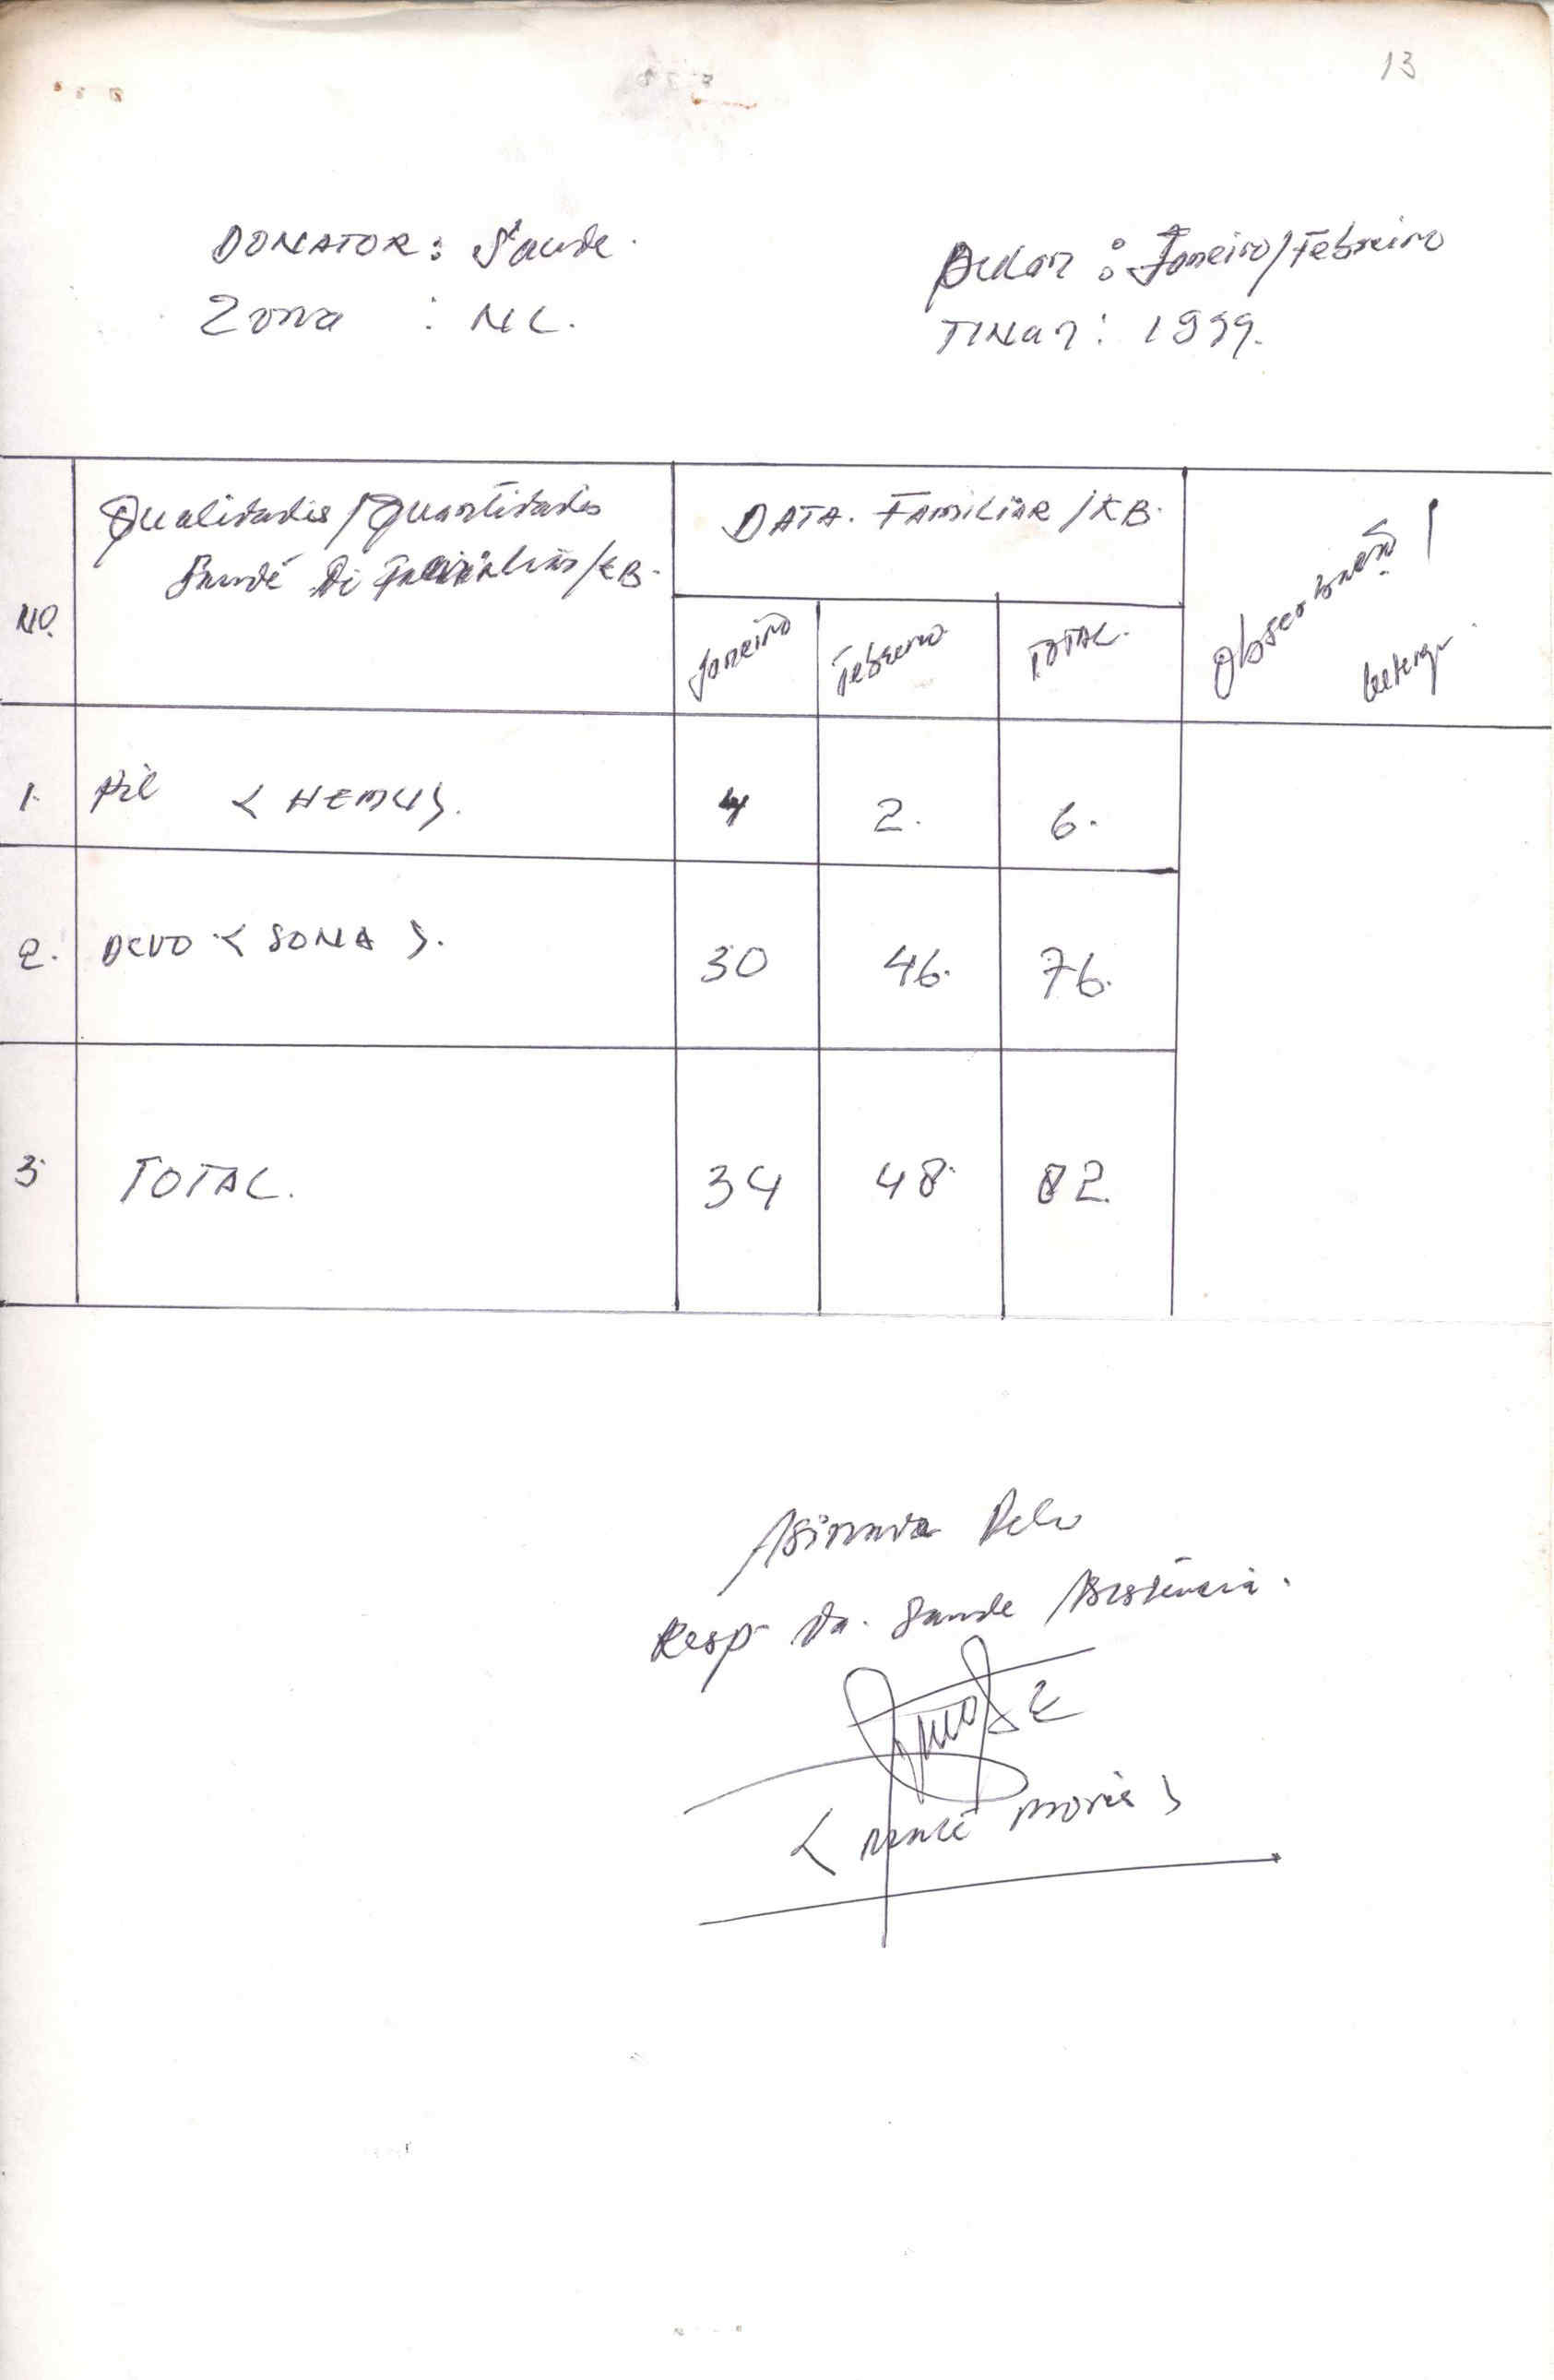 13
DONATOR: Saude.
Zona : NL.
Bulan : Janeiro/Febreiro
TINan: 1999.
NO.
Qualidades/Quantidades
Saude Di /KB.
DATA. FAMILIAR /KB.
Janeiro
Febreiro
TOTAL.
Observação /
1. Pil < HEMU>. 4 2. 6.
2. DEVO < SONA >. 30 46. 76.
3 TOTAL. 34 48. 82.
Asinada Pelo
Resp. Da. Saude Asistência.